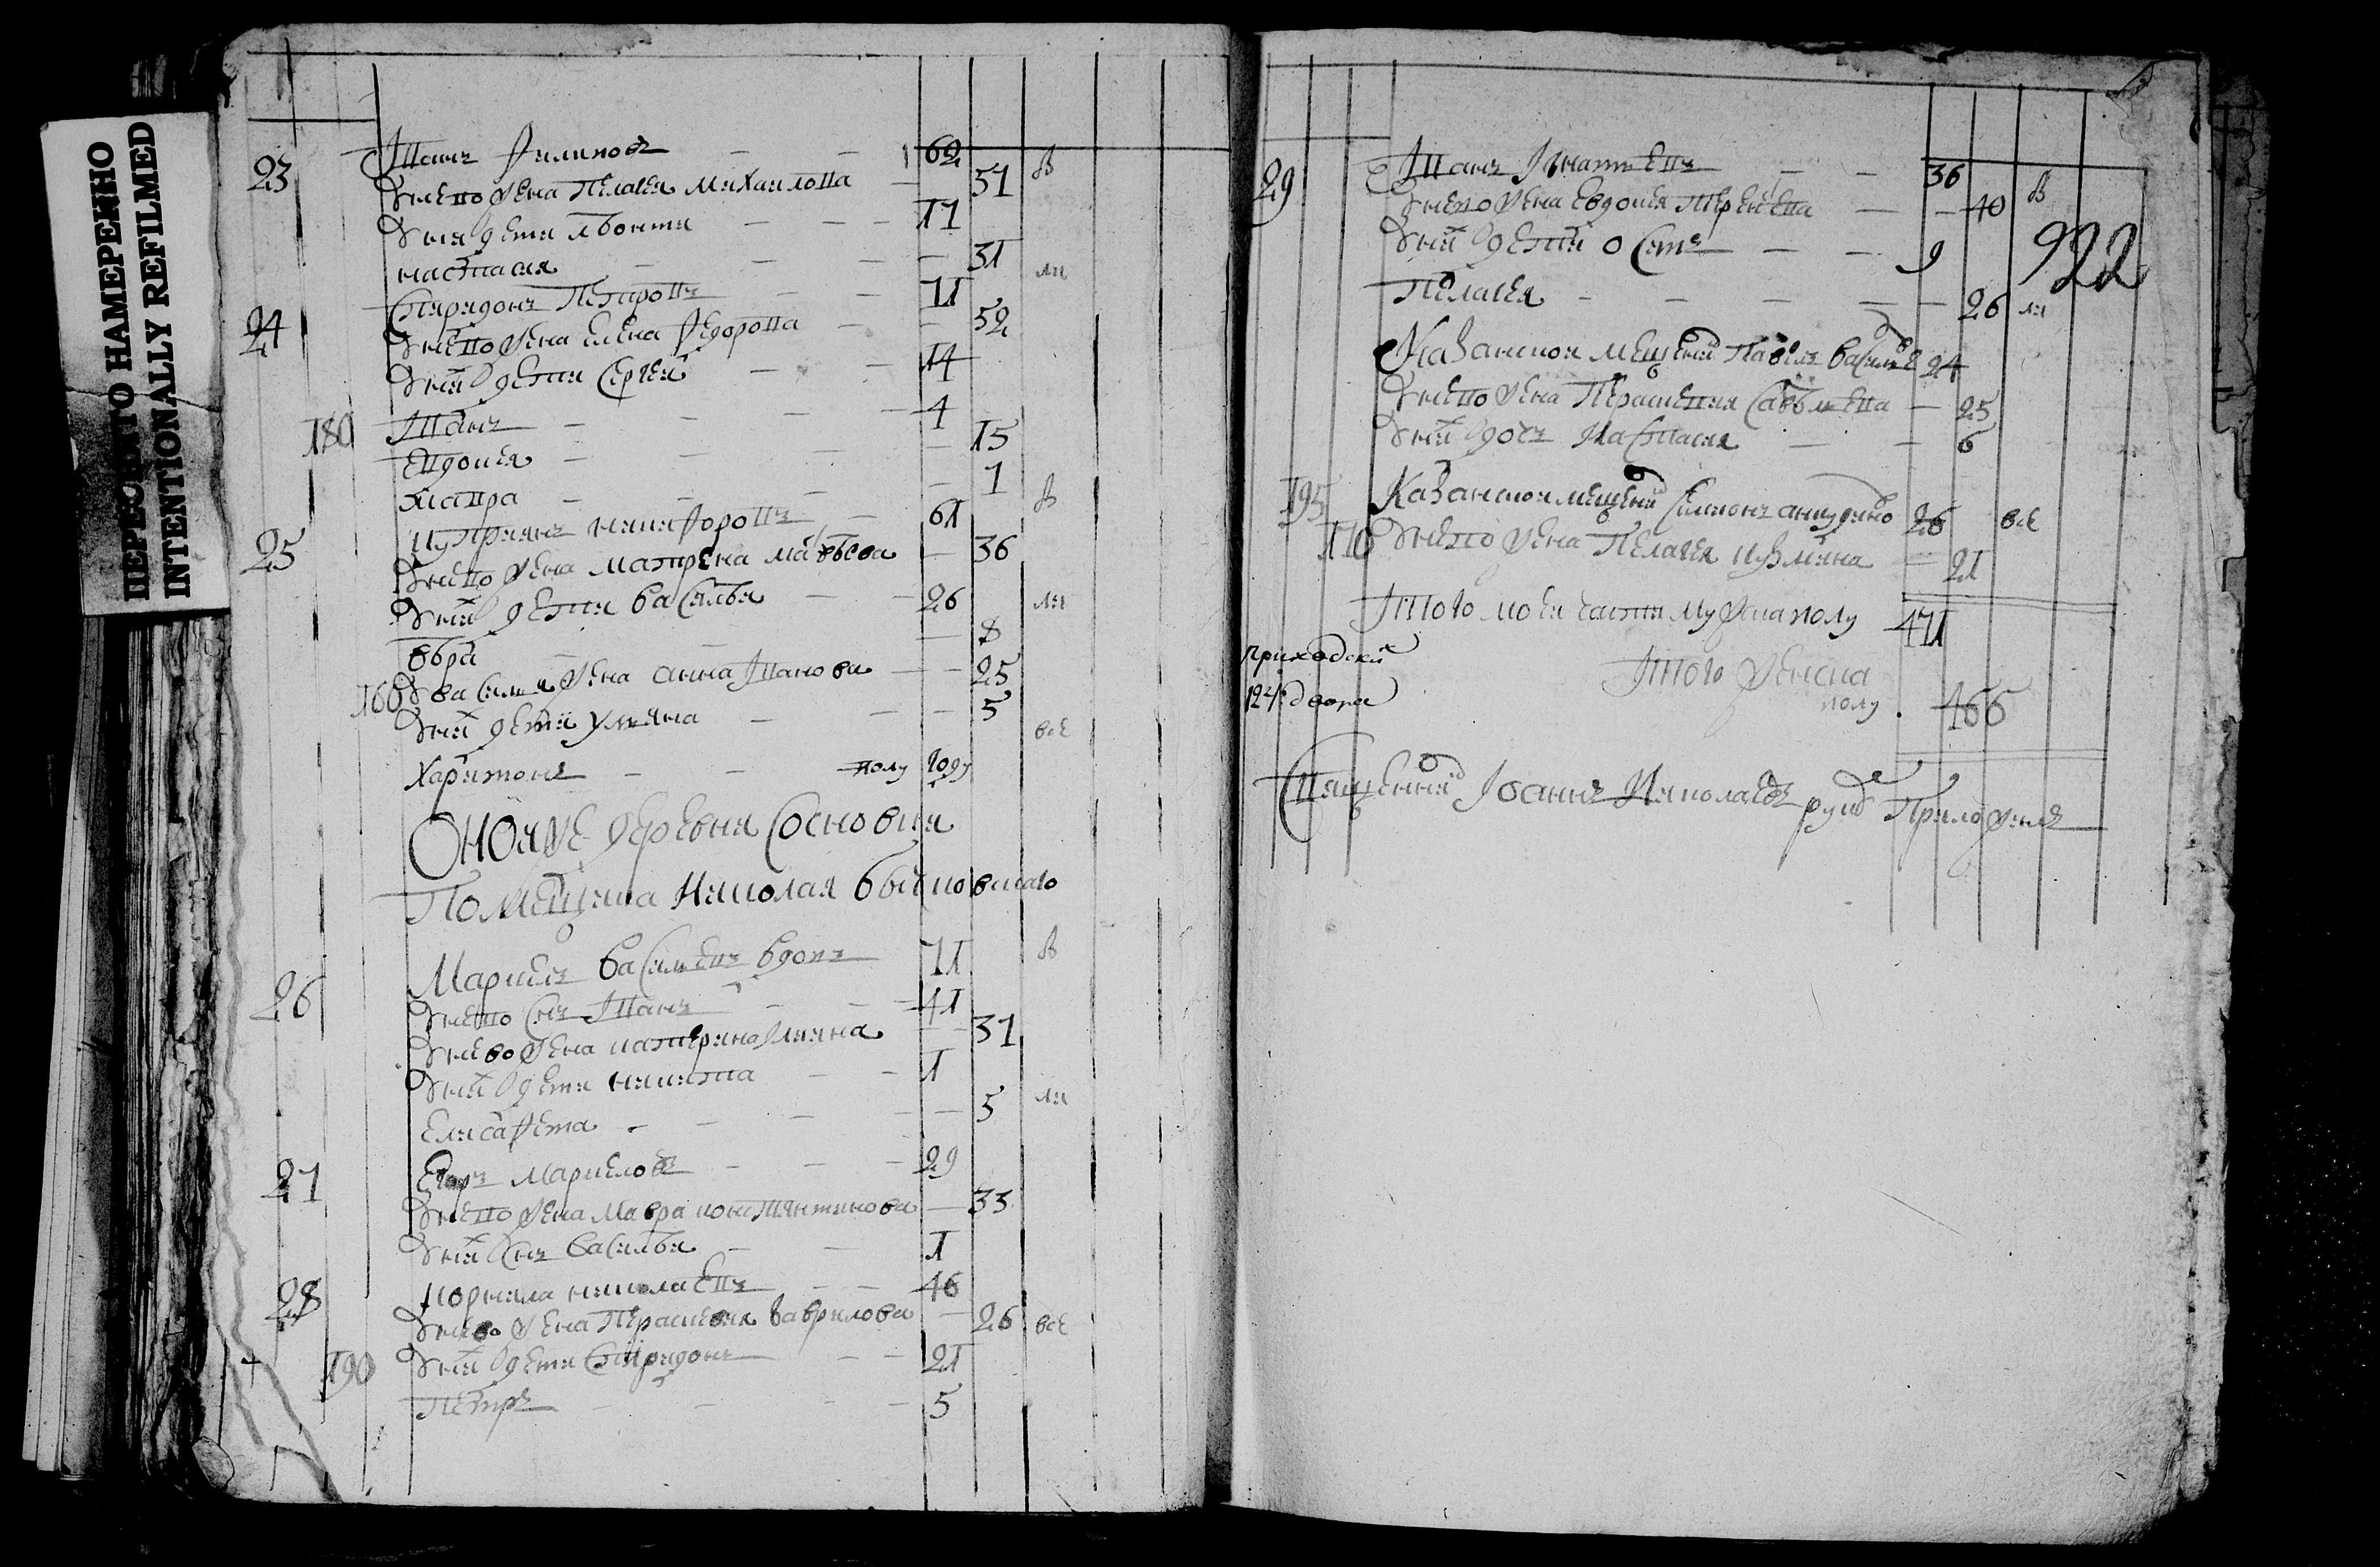 ПЕРЕСНЯТО НАМЕРЕННО
INTENTIONALLY REFILMED
23 Иванъ Филиповъ 62 в
У него жена Пелагея Михаилова 51
У них дети Леонтеи 17
Настасия 31 ли
24 Спиридонъ Петровъ 71
У него жена Елена Федорова 52
У них дети Сергеи 14
180 Иванъ 4
Евдокея 15
Мавра 1
25 Куприянъ Никифоровъ 61 в
У него жена Матрена Матвеева 36
У них дети Василеи 26 ли
8
160 У Василия жена Анна Иванова 25
У них дети Ульяна 5 все
Харитонъ полу году
Оноя же деревня Сосновки
Помещика Николая
26 Маркелъ Васильевъ вдовъ 71 в
У него сынъ Иванъ 41
У него жена Катерина 31
У них дети Никита 1
Елисафета 5 ли
27 Егоръ Маркеловъ 29
У него жена Мавра Константинова 33
У них сынъ Василеи 1
28 Корнила Николаевъ 46
У него жена Парасковия Гаврилова 26 все
190 У них дети Спиридонъ 21
Петръ 5
29 Иванъ Игнатьевъ 36 в
У него жена Евдокея Терентева 40
922
У них дети Осипъ 9
Пелагея 26 ли
Казанскои мещенин Павелъ Василев 24
У него жена Парасковия Савельева 25
У них дочь Настасия 6
195 Казанскои мещенин Симионъ 26 все
170 У него жена Пелагея Кузмина 21
Итого мужска полу 471
приходских Итого женска
124 двора полу 466
Священникъ Иоаннъ Николаевъ руку Приложилъ